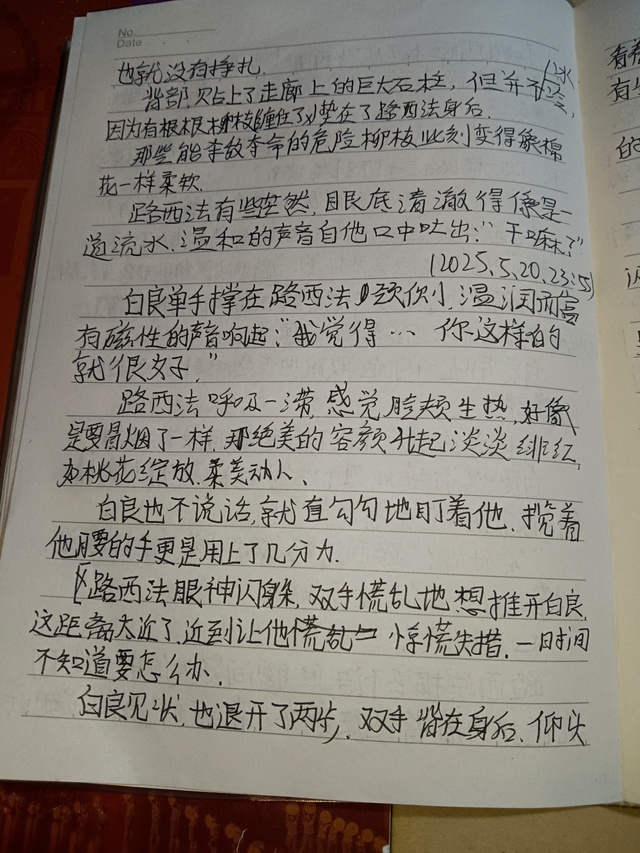 No.
Date
也就没有挣扎.
背部贴上了走廊上的巨大石柱, 但并不冰
因为有根根柳枝缠住了垫在了路西法身后.
那些能李敌夺命的危险柳枝此刻变得像棉
花一样柔软.
路西法有些茫然, 目艮底清澈得像是一
道流水. 温和的声音自他口中吐出:"干嘛?"
(2025.5.20.23:55)
白良单手撑在路西法颈侧, 温润而富
有磁性的声音响起:"我觉得… 你这样的
就很好."
路西法呼吸一滞, 感觉脸颊生热, 好像
是要冒烟了一样. 那绝美的容颜升起淡淡绯红,
如桃花绽放. 柔美动人.
白良也不说话, 就直勾勾地盯着他. 揽着
他腰的手更是用上了几分力.
路西法眼神闪躲, 双手慌乱地想推开白良,
这距离太近了. 近到让他慌乱 惊慌失措. 一时间
不知道要怎么办.
白良见状, 也退开了两步, 双手背在身后. 仰头
看着
有
的
闪